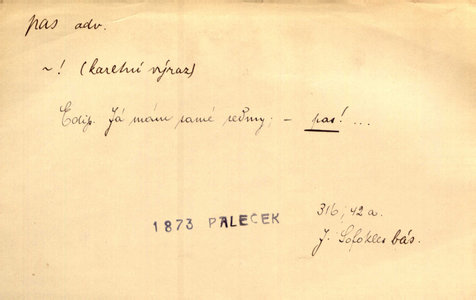 pas adv.
~! (karetní výraz)
Edip. Já mám samé sedmy; – pas! ...
1873 PALEČEK
316; 42a.
J. Sofokles bás.